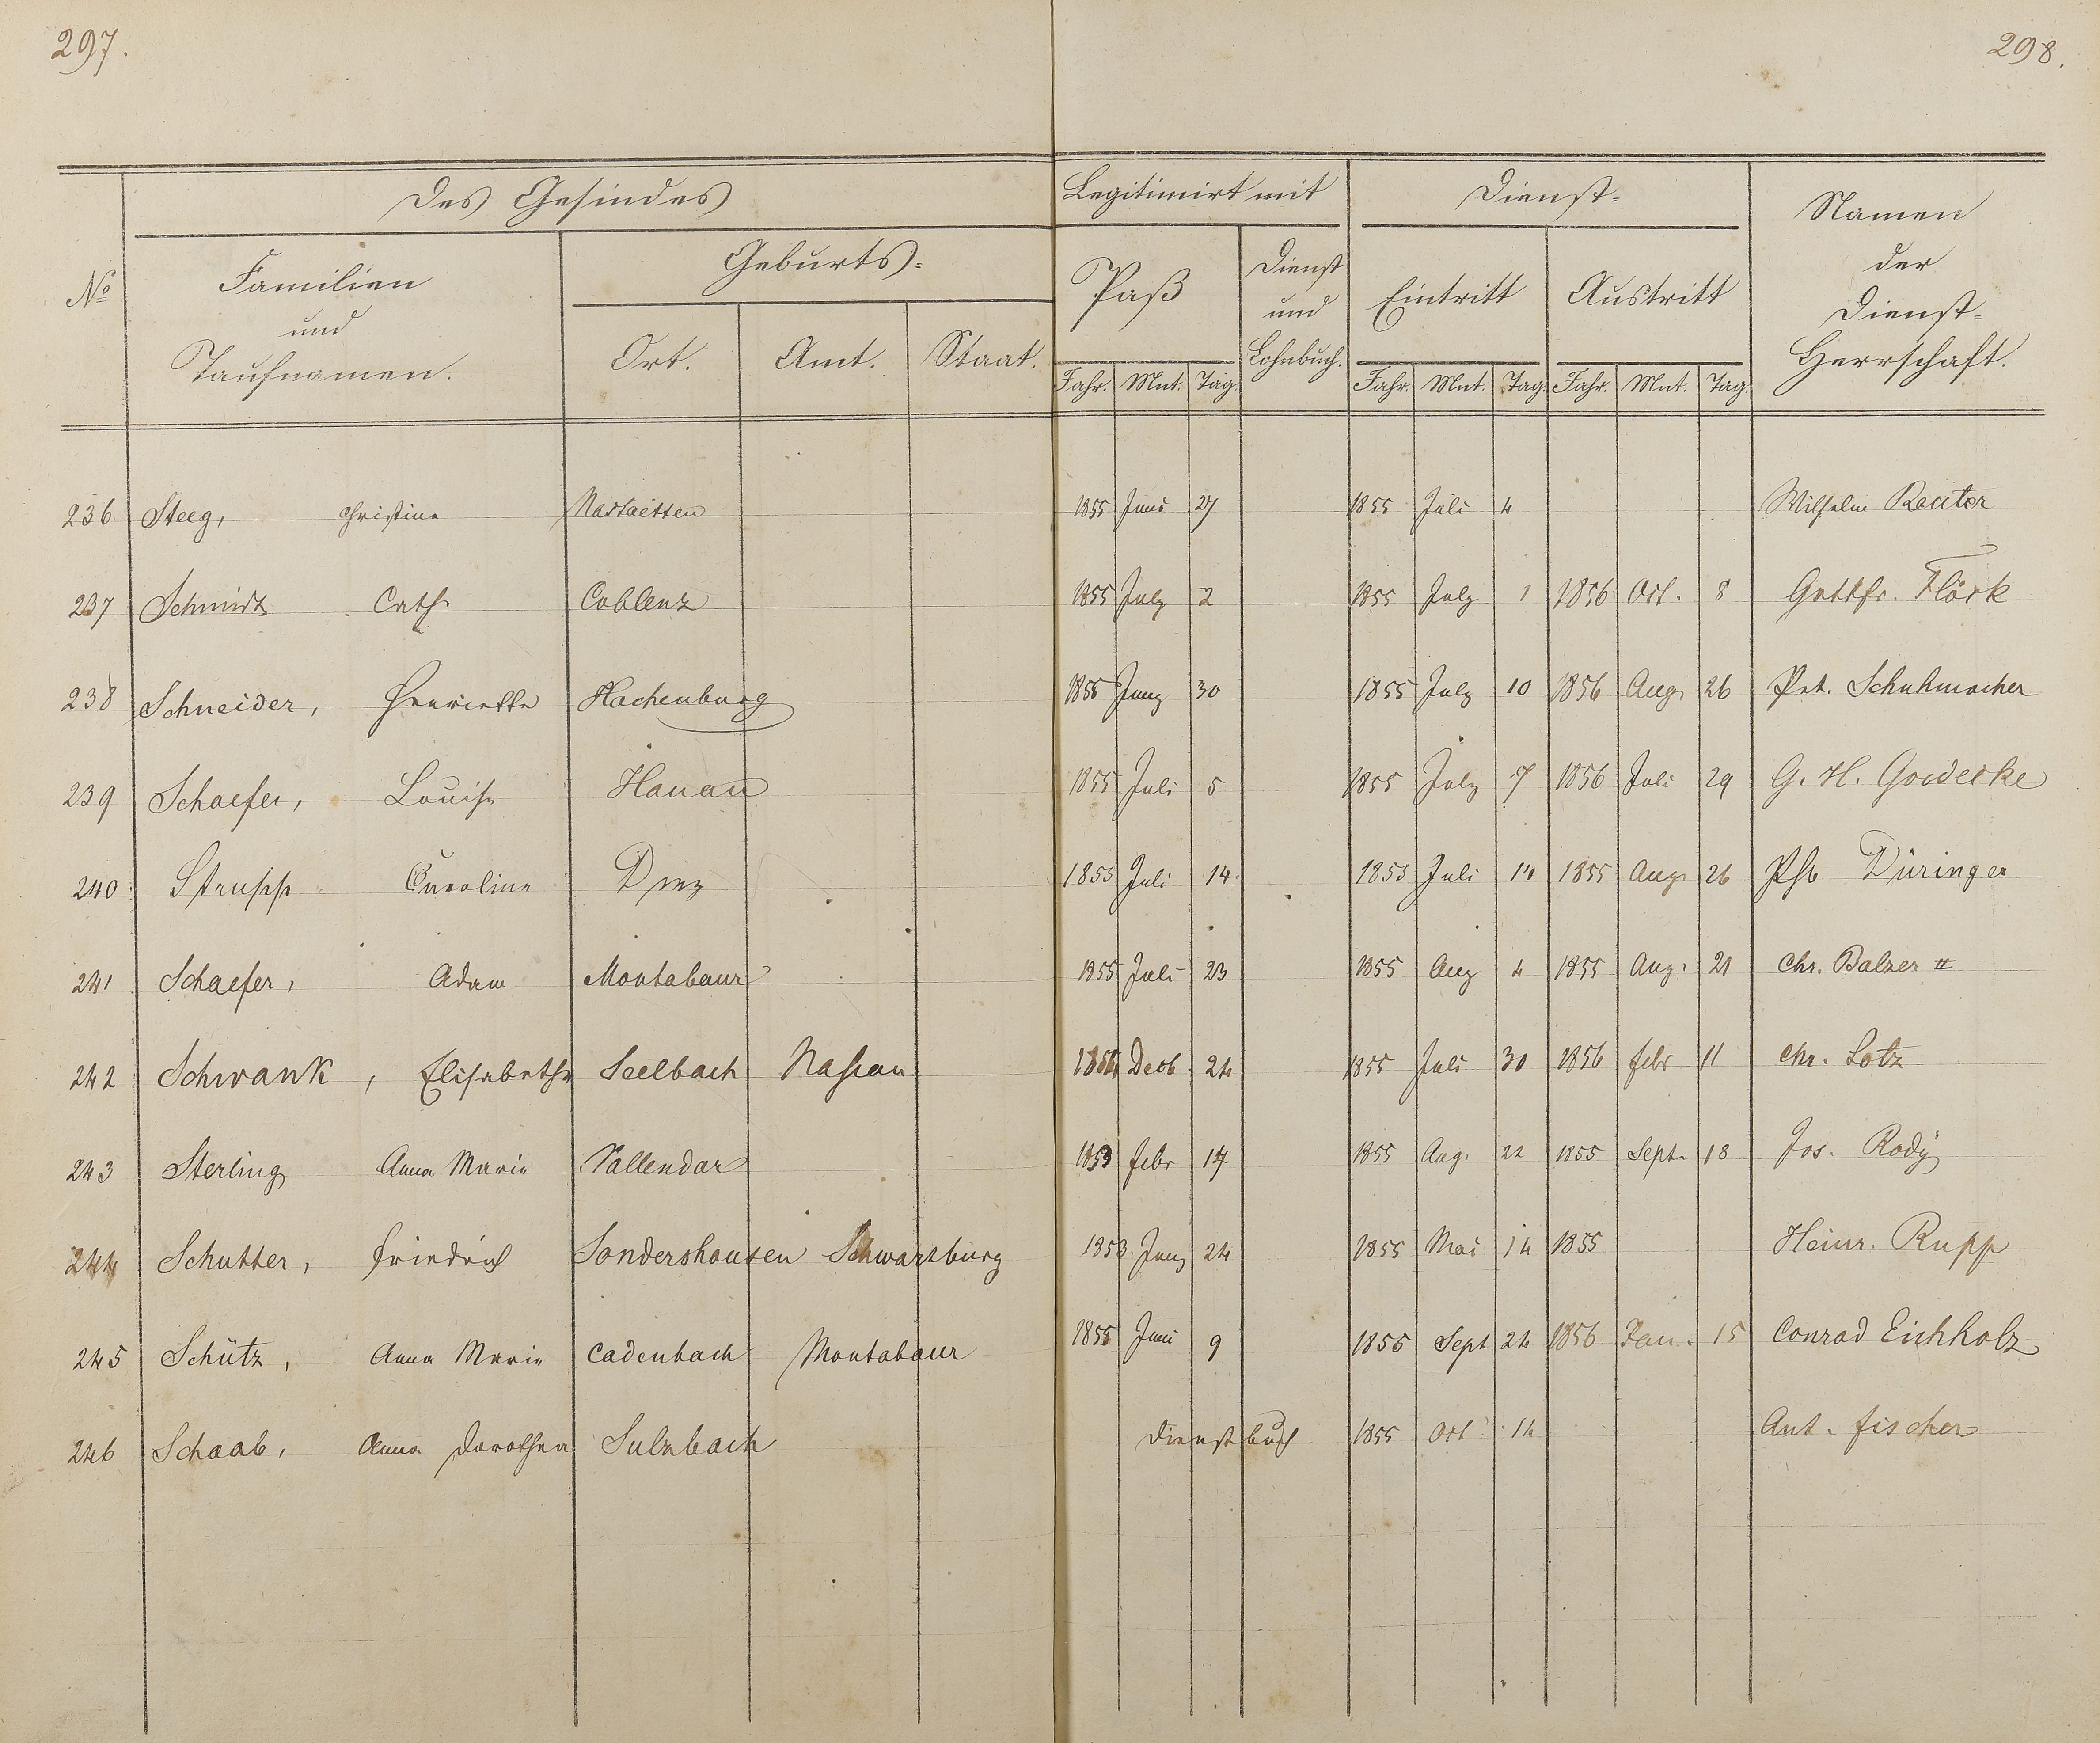 297.
298.
Des Gesindes
Legitimirt mit
Dienst=
Namen
der
Dienst=
Herrschaft.
No
Familien
und
Taufnamen.
Geburts=
Ort. Amt. Staat.
Paß
Dienst
und
Lohnbuch.
Eintritt
Austritt
Jahr. Mnt. Tag. Jahr. Mnt. Tag. Jahr. Mnt. Tag.
236 Steeg, Christine Nastaetten 1855 Juni 27 1855 Juli 4 Wilhelm Reuter
237 Schmidt Cath Coblenz 1855 July 2 1855 July 1 1856 Oct. 8 Gottfr. Flörk
238 Schneider, Henriette Hachenburg 1855 Juny 30 1855 July 10 1856 Aug. 26 Pet. Schuhmacher
239 Schaefer, Louise Hanau 1855 Juli 5 1855 July 7 1856 Juli 29 G. H. Goedecke
240 Strupp Caroline Diez 1855 Juli 14 1855 Juli 14 1855 Aug. 26 Düringer
241 Schaefer, Adam Montabaur 1855 Juli 23 1855 Aug 4 1855 Aug. 21 Chr. Balzer II
242 Schwank, Elisabethe Seelbach Nassau Decb. 24 1855 Juli 30 1856 febr 11 Chr. Lotz
243 Sterling Anna Marie Vallendar 1853 febr 17 1855 Aug. 22 1855 Sept. 18 Jos. Rody
244 Schutter, friedrich Sondershausen Schwarzburg 1853 Juny 24 1855 Mai 14 1855 Heinr. Rupp
245 Schütz, Anna Marie Cadenbach Montabaur 1855 Juni 9 1855 Sept 24 1856 Jan. 15 Conrad Eichholz
246 Schaab, Anna Dorothea Sulzbach Dienstbuch 1855 Oct 14 Ant. fischer